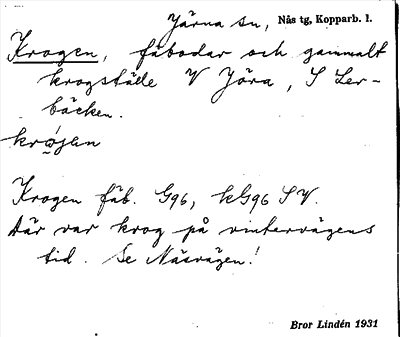 Järna sn, Nås tg, Kopparb. l.
Krogen, fäbodar och gammalt
krogställe V Jöra, S Ler-
bäcken.
krὼjen
Krogen fäb. G96, kG96 SV.
Där var krog på vintervägens
tid. Se Näsvägen!
Bror Lindén 1931